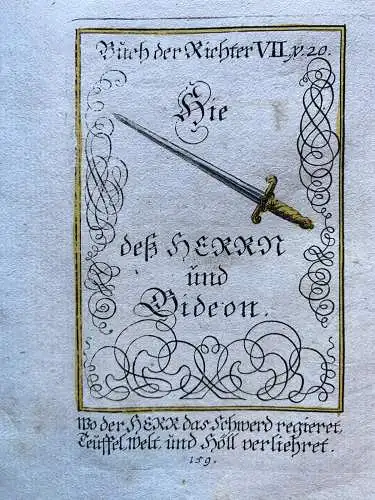 Buch der Richter VII. ꝟ. 20.
Hie
deß HERRN
und
Gideon.
Wo der HERR das Schwerd regieret,
Teuffel, Welt, und Höll verliehret.
159.